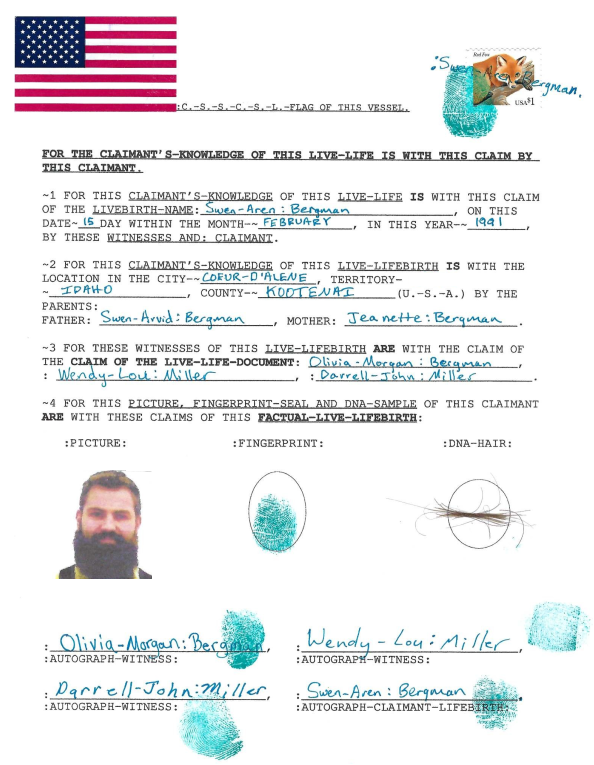 :Swen-Aren:Bergman.
Red Fox
USA $1
:C.-S.-S.-C.-S.-L.-FLAG OF THIS VESSEL.
FOR THE CLAIMANT'S-KNOWLEDGE OF THIS LIVE-LIFE IS WITH THIS CLAIM BY
THIS CLAIMANT.
~1 FOR THIS CLAIMANT'S-KNOWLEDGE OF THIS LIVE-LIFE IS WITH THIS CLAIM
OF THE LIVEBIRTH-NAME: Swen-Aren:Bergman, ON THIS
DATE~ 15 DAY WITHIN THE MONTH~~ FEBRUARY, IN THIS YEAR~~ 1991,
BY THESE WITNESSES AND: CLAIMANT.
~2 FOR THIS CLAIMANT'S-KNOWLEDGE OF THIS LIVE-LIFEBIRTH IS WITH THE
LOCATION IN THE CITY~~ COEUR-D'ALENE, TERRITORY-
~ IDAHO, COUNTY~~ KOOTENAI (U.-S.-A.) BY THE
PARENTS:
FATHER: Swen-Arvid:Bergman, MOTHER: Jeanette:Bergman.
~3 FOR THESE WITNESSES OF THIS LIVE-LIFEBIRTH ARE WITH THE CLAIM OF
THE CLAIM OF THE LIVE-LIFE-DOCUMENT: Olivia-Morgan:Bergman,
: Wendy-Lou:Miller, : Darrell-John:Miller.
~4 FOR THIS PICTURE, FINGERPRINT-SEAL AND DNA-SAMPLE OF THIS CLAIMANT
ARE WITH THESE CLAIMS OF THIS FACTUAL-LIVE-LIFEBIRTH:
:PICTURE: :FINGERPRINT: :DNA-HAIR:
: Olivia-Morgan:Bergman, : Wendy-Lou:Miller,
:AUTOGRAPH-WITNESS: :AUTOGRAPH-WITNESS:
: Darrell-John:Miller, : Swen-Aren:Bergman.
:AUTOGRAPH-WITNESS: :AUTOGRAPH-CLAIMANT-LIFEBIRTH: